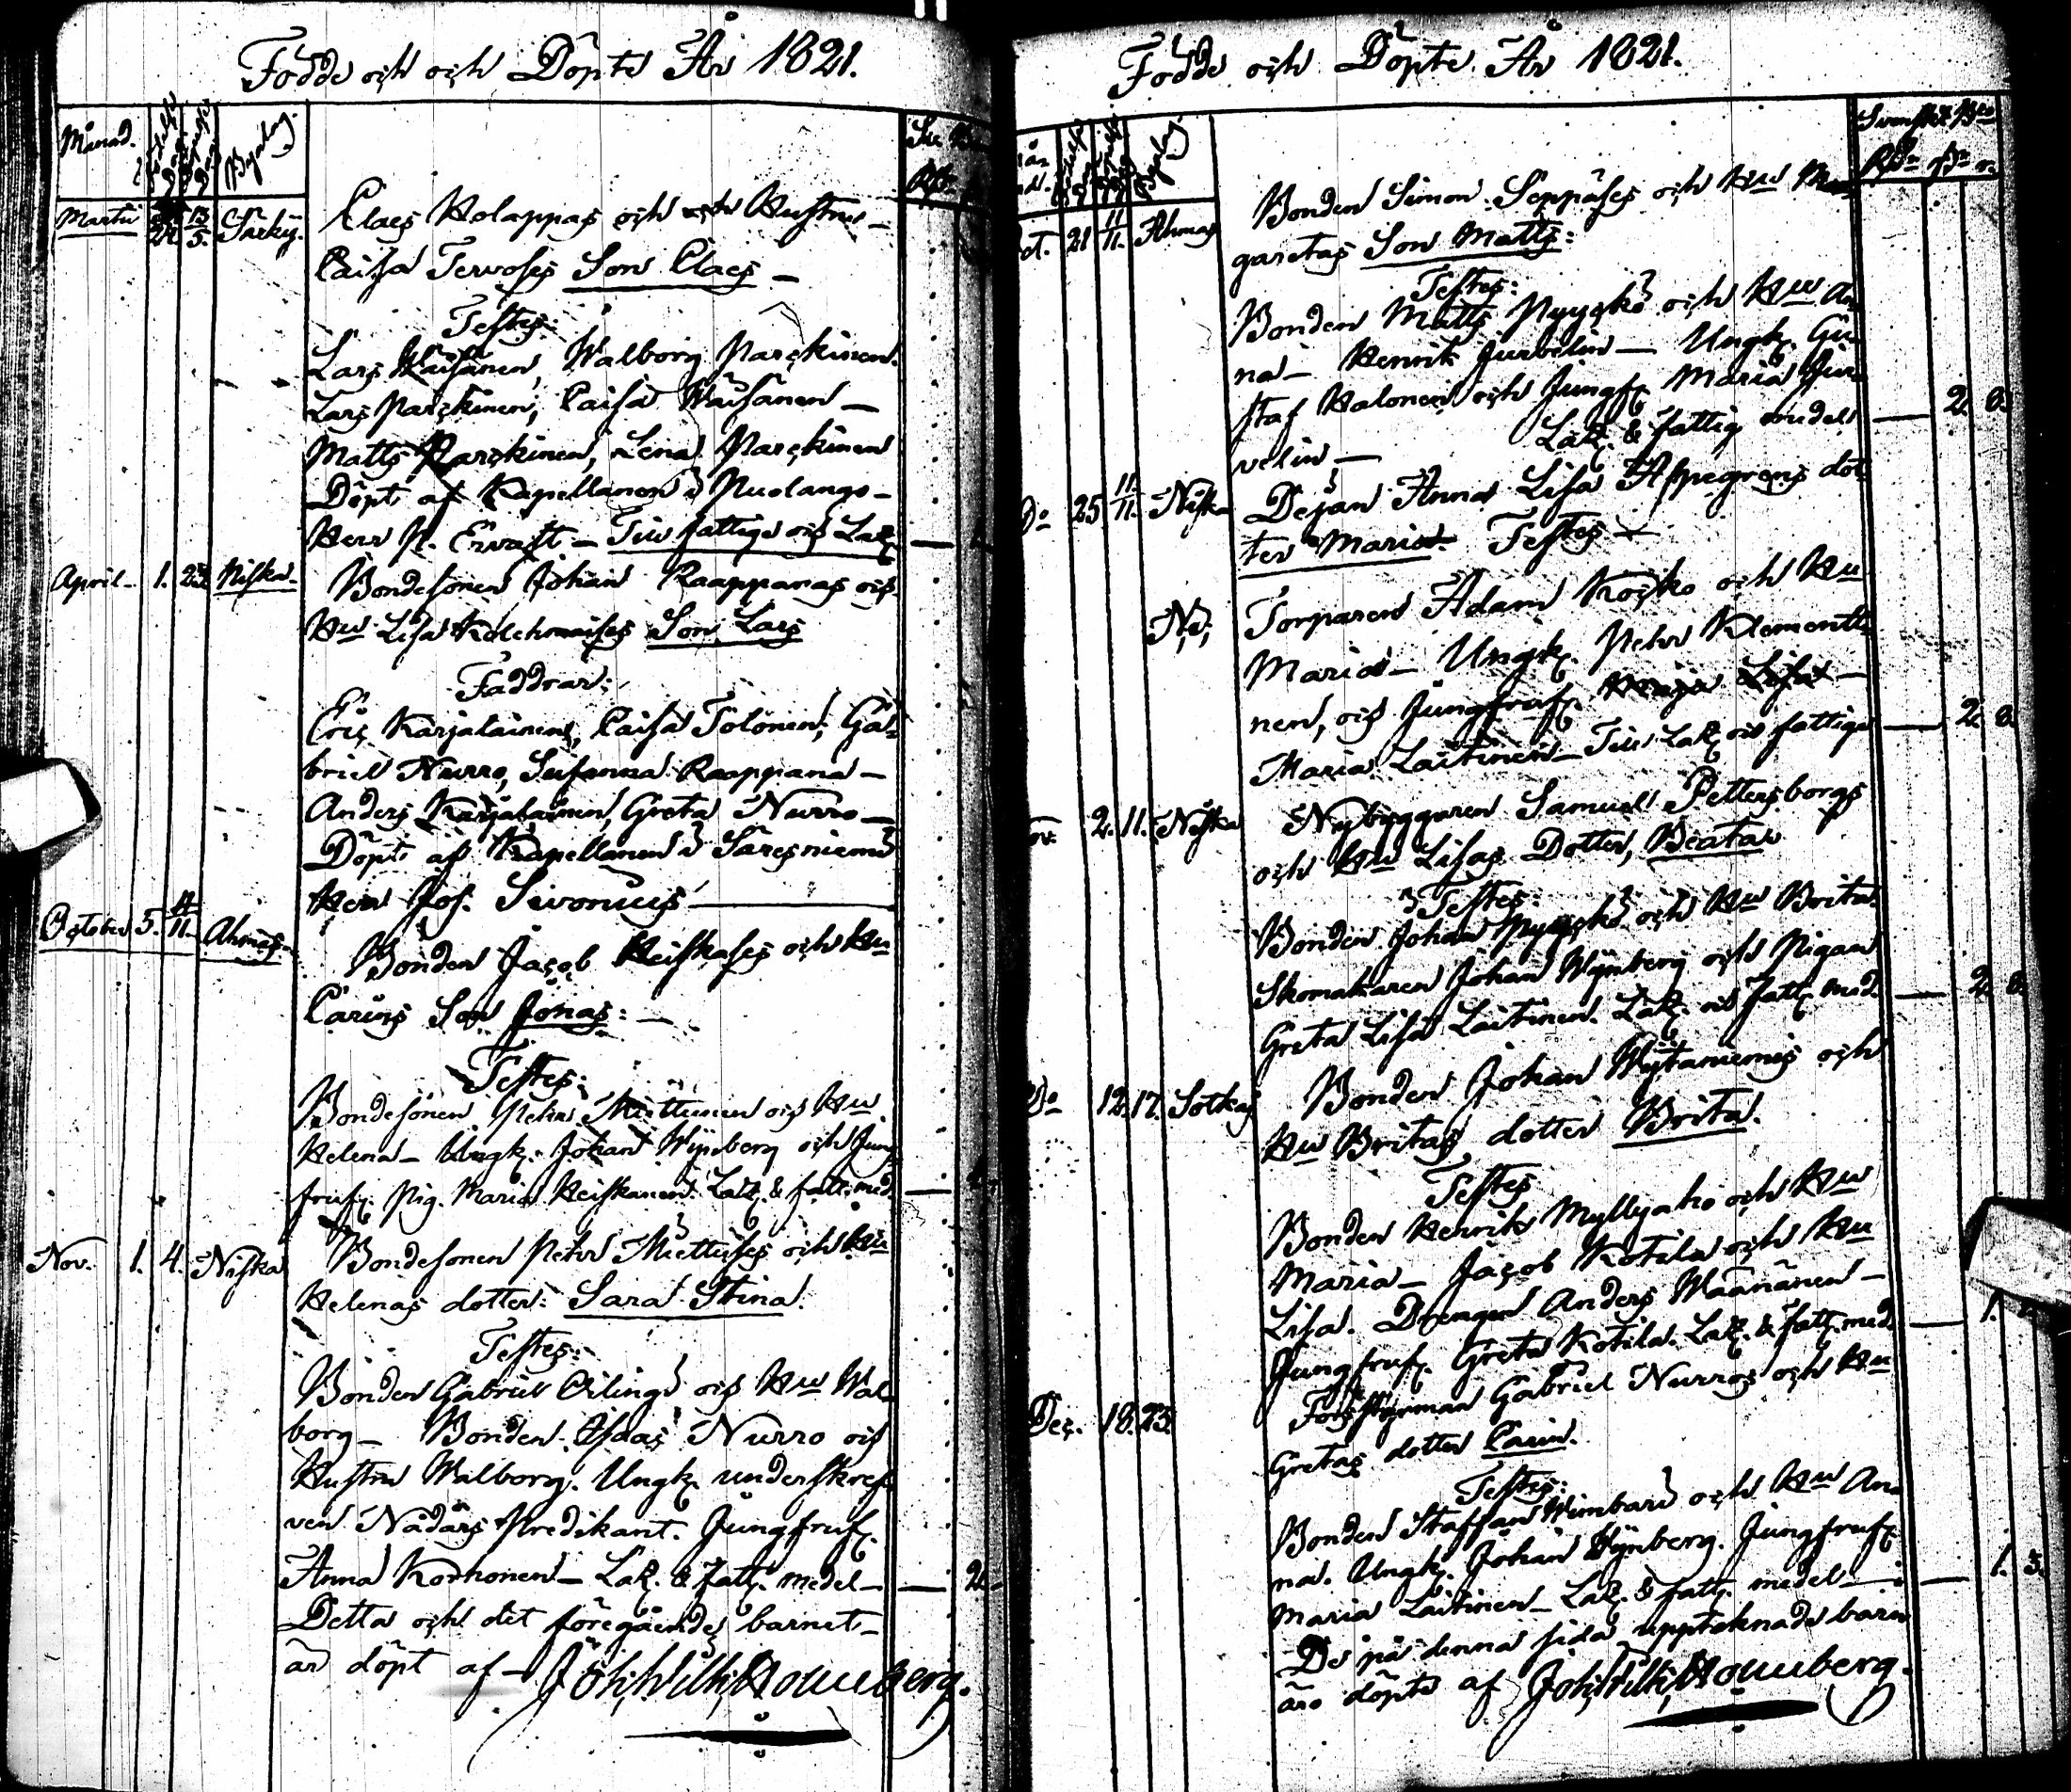 Födde och och Döpte År 1821.
Månad.
Födelse Dag
Byalag.
Martii 13/5. Särkij.
Claes Holappas och Hustru
Caisa Tervoses Son Claes —
Testes:
Lars Wäisänen, Walborg Parckinen.
Lars Parckinen, Caisa Wäisänen —
Matts Parckinen, Lena Parckinen
Döpt af Kapellanen i Puolango-
Herr P. Ervast — Till fattige och Laz.
April 1. 23 Niska
Bondesonen Johan Raappanas och
Hu Lisa Kolehmaises Son Lars
Faddrar:
Eric Karjalainen, Caisa Tolonen, Ga-
briel Nurro, Susanna Raappana —
Anders Karjalainen, Greta Nurro —
Döpt af Kapellanen i Säresniemi
Herr Jos. Sivonius
October 5. 11. Ahmas
Bonden Jacob Heiskases och Hu
Carins Son Jonas: —
Testes:
Bondesonen Petter Miettunen och Hu
Helena — Ungk. Johan Wijnberg och Jung
fruf. Pig. Maria Heiskanen. Laz. & fatt. med.
Nov. 1. 4. Niska
Bondesonen Petter Miettuses och Hu
Helenas dotter: Sara Stina.
Testes:
Bonden Gabriel Oilingi och Hu Wal-
borg — Bonden Isaac Nurro och
Hustru Walborg. Ungk. underskref
ven Nådårs Predikant. Jungfruf.
Anna Korhonen — Laz. & fatt. medel — 2.
Detta och det föregående barnet
är döpt af — Joh. Wilh. Hornberg.
Födde och Döpte År 1821.
Svenskt Bco
Oct. 21 11/11. Ahmas
Bonden Simon Seppäses och Hu Mar
garetas Son Matts:
Testes:
Bonden Matts Pyyckö och Hu An
na — Henrik Jurvelin — Ungk. Gu
staf Halonen och Jungf. Maria Jur
velin — Laz. & fattig medel — 2. 8.
Do 25 11/11. Niska
Dejan Anna Lisa Aspegrens dot
ter Maria. Testes —
Torparen Adam Kocko och Hu
Maria — Ungk. Petter Klementti
nen, och Jungfruf.
Maria Laitinen — Till Laz. och fattige — 2. 8.
Nov. 2. 11. Niska
Nybyggaren Samuel Pettersborgs
och Hu Lisas Dotter, Beata
Testes:
Bonden Johan Pyyckö och Hu Brita
Skomakaren Johan Wijnberg och Pigan
Greta Lisa Laitinen. Laz. och fatt. med. — 2. 8.
Do 12. 17. Sotkaj
Bonden Johan Wijtaniemis och
Hu Britas dotter Brita.
Testes
Bonden Henrik Myllyaho och Hu
Maria — Jacob Kotila och Hu
Lisa. Drengen Anders Määnänen —
Jungfruf. Greta Kotila. Laz. & fatt. med. — 1.
Dec. 18. 23.
Forsstyrman Gabriel Nurros och Hu
Gretas dotter Carin.
Testes:
Bonden Staffan Wimbari och Hu An
na. Ungk. Johan Wijnberg. Jungfruf.
Maria Laitinen — Laz. & fatt. medel — 1. 3.
De på denna sida uppteknade barn
äro döpte af Joh. Wilh. Hornberg.